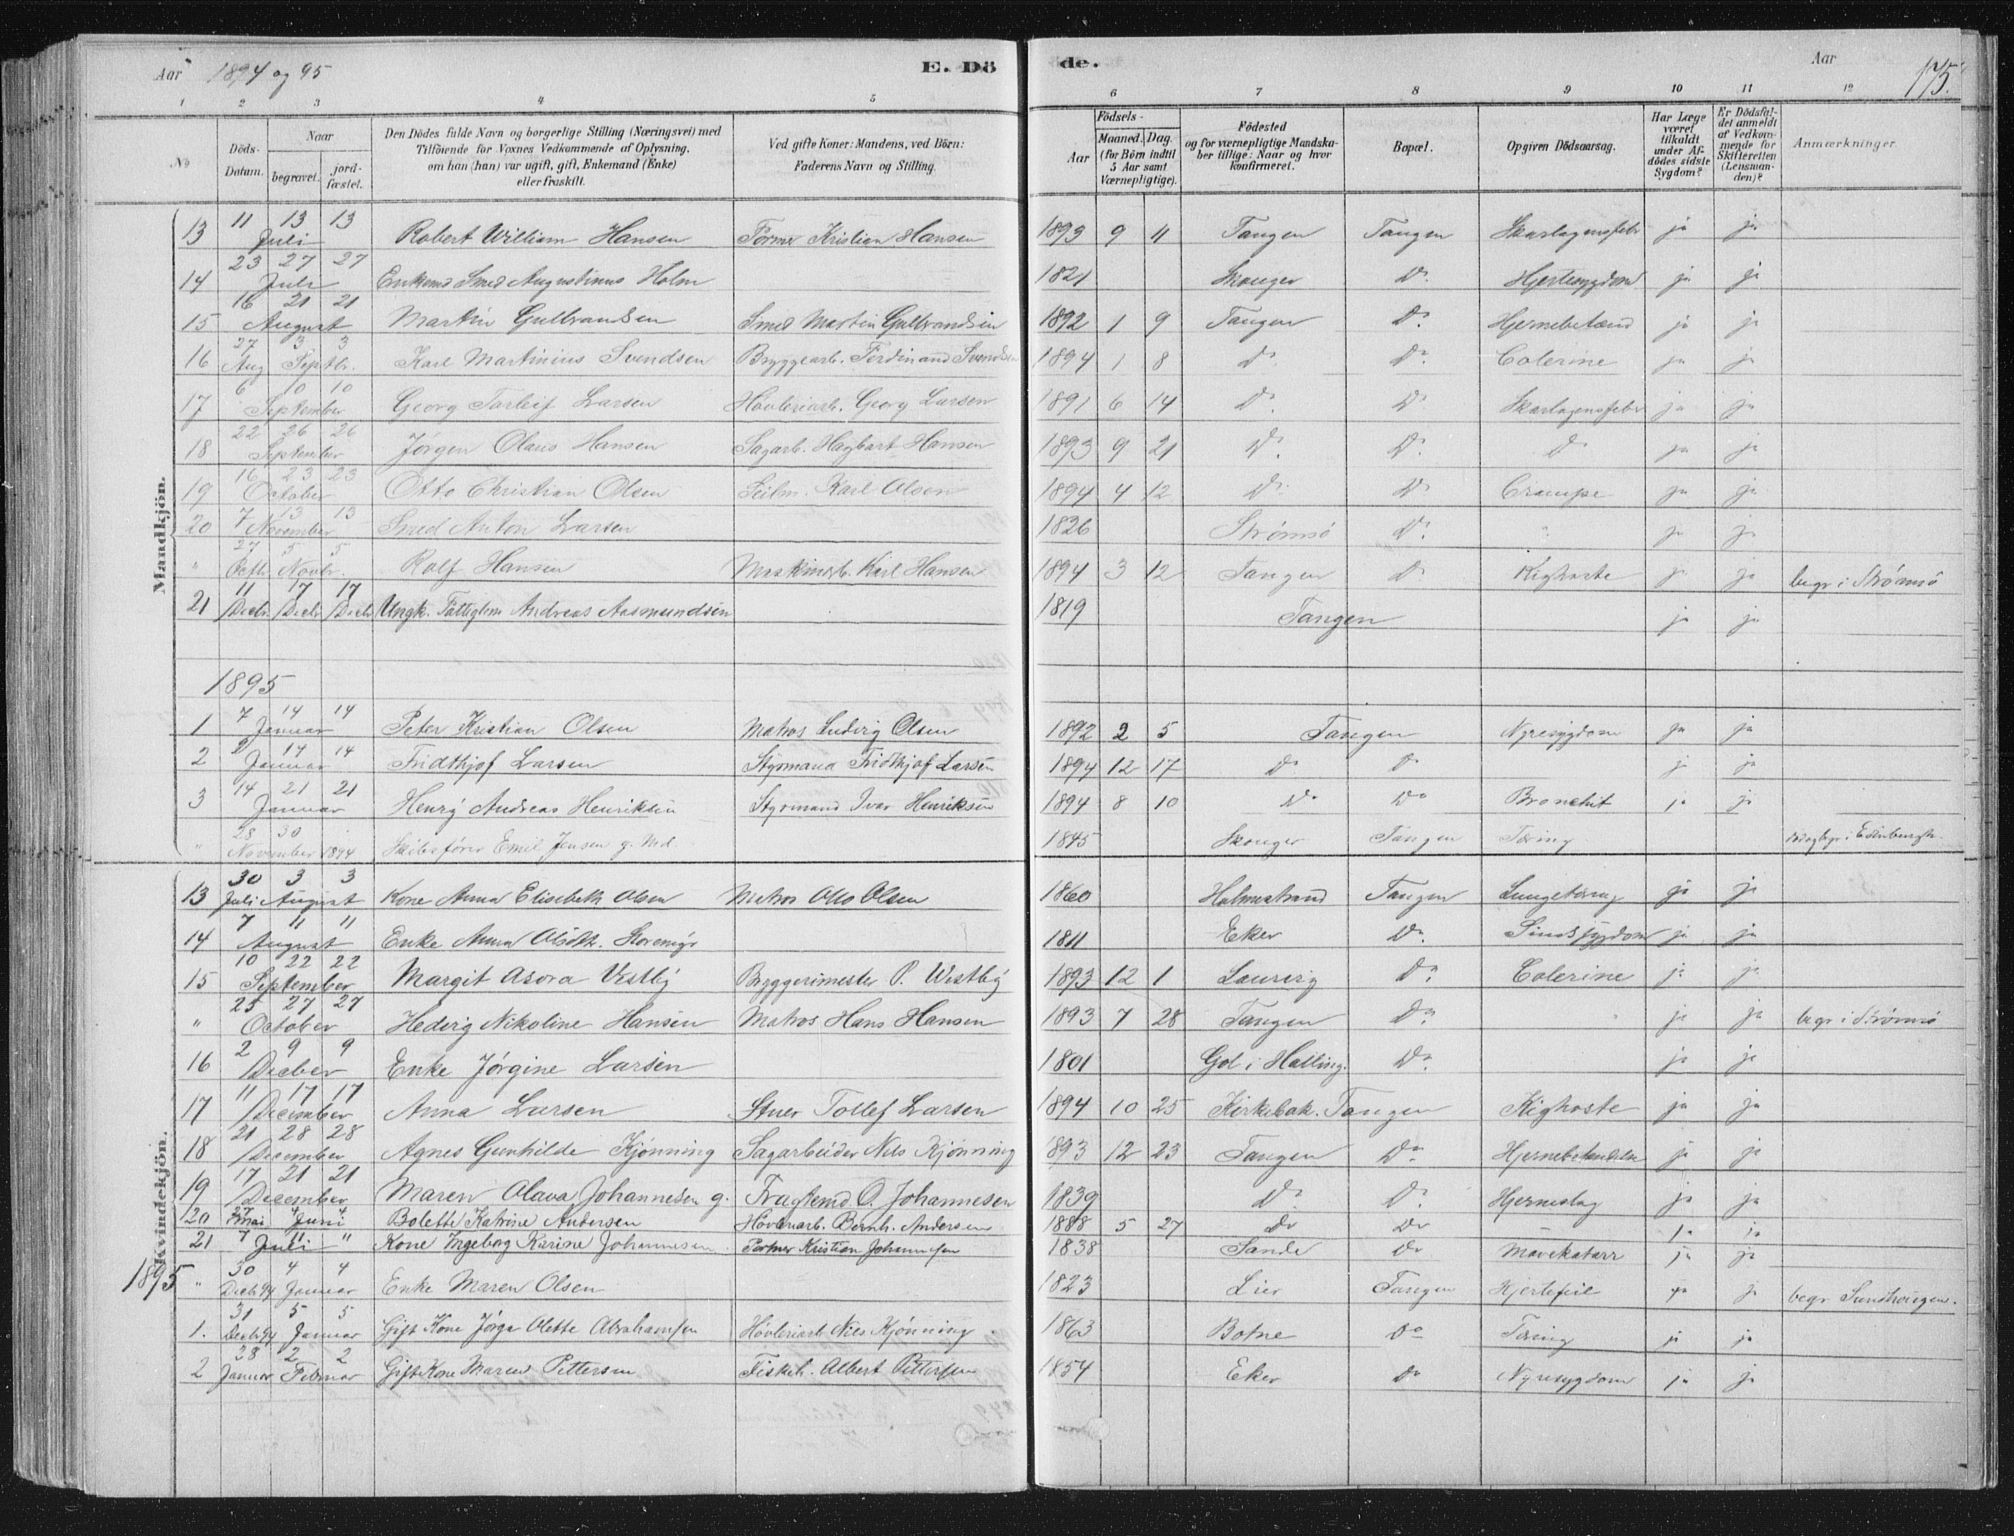 Aar 1894 og 95 E. Dö de. Aar 175.
1 2 3 4 5 6 7 8 9 10 11 12
No Döds-Datum. Naar begravet. jordfæstet. Den Dödes fulde Navn og borgerlige Stilling (Næringsvei) med Tilföiende for Voxnes Vedkommende af Oplysning, om han (hun) var ugift, gift, Enkemand (Enke) eller fraskilt. Ved gifte Koner: Mandens, ved Börn: Faderens Navn og Stilling. Födsels- Aar Maaned. Dag. (for Börn indtil 5 Aar samt Værnepligtige). Födested og for værnepligtige Mandskaber tillige: Naar og hvor konfirmeret. Bopæl. Opgiven Dödsaarsag. Har Læge været tilkaldt under Afdödes sidste Sygdom? Er Dödsfaldet anmeldt af Vedkommende for Skifteretten (Lensmanden)? Anmærkninger.
Mandkjön.
13 11 13 13 Juli Robert William Hansen Former Kristian Hansen 1893 9 11 Tangen Tangen Skarlagensfeber ja ja
14 23 27 27 Juli Enkemd Smed Augustinus Holm 1821 Skoger Do. Hjertesygdom ja ja
15 16 21 21 August Martin Gulbrandsen Smed Martin Gulbrandsen 1892 1 9 Tangen Do. Hjernebetænd ja ja
16 27 3 3 Aug Septbr. Karl Martinius Svendsen Bryggearb. Ferdinand Svendsen 1894 1 8 Do. Do. Colerine ja ja
17 6 10 10 September Georg Torleif Larsen Hövleriarb. Georg Larsen 1891 6 14 Do. Do Skarlagensfeber ja ja
18 22 26 26 September Jørgen Olaus Hansen Sagarb. Hagbart Hansen 1893 9 21 Do. Do. Do ja ja
19 16 23 23 October Otto Christian Olsen Seilm. Karl Olsen 1894 4 12 Do. Do Crampe ja ja
20 7 13 13 November Smed Anton Larsen 1826 Strømsö Do. " ja ja
" 27 5 5 Octb. Novbr. Rolf Hansen Maskinarb. Karl Hansen 1894 3 12 Tangen Do Kighoste ja ja begr i Strømsö
21 11 17 17 Decbr. Decbr. Decbr Ungk. Fattiglem Andreas Aasmundsen 1819 Tangen ja ja
1895
1 7 14 14 Januar Peter Kristian Olsen Matros Ludvig Olsen 1892 2 5 Tangen Nyresygdom ja ja
2 14 14 Januar Fridthjof Larsen Styrmand Fridthjof Larsen 1894 12 17 Do Do ja ja
3 14 21 21 Januar Henry Andreas Henriksen Styrmand Ivar Henriksen 1894 8 10 Do Do Bronchit ja ja
" 28 30 November 1894 Skibsfører Emil Jensen g. Md. 1845 Skoger Tangen Tæring
Kvindekjön.
13 30 3 3 Juli August Kone Anna Elisebeth Olsen Matros Otto Olsen 1860 Holmestrand Tangen Lungetæring ja ja
14 7 11 11 August Enke Anna 1811 Eker Do. Sindssygdom ja ja
15 10 22 22 September Margit Asora Vestby Byggerimester P. Westby 1893 12 1 Laurvig Do. Colerine ja ja
" 25 27 27 October Hedvig Nikoline Hansen Matros Hans Hansen 1893 7 28 Tangen Do. " ja ja begr i Strømsö
16 2 9 9 Decber Enke Jørgine Larsen 1801 Gol i Halling. Do. ja ja
17 11 17 17 December Anna Larsen Stuer Tollef Larsen 1894 10 25 Kirkebak. Tangen Kighoste ja ja
18 21 28 28 December Agnes Gunhilde Kjønning Sagarbeider Nils Kjønning 1893 12 23 Tangen Do. Hjernebetændelse ja ja
19 17 21 21 December Maren Olava Johannesen g. Fragtemd O. Johannesen 1839 Do. Do. Hjerneslag ja ja
20 27 4 4 mai Juni Bolette Katrine Andersen Hövleriarb. Bernh. Andersen 1888 5 27 Do Do — ja ja
21 7 11 " Juli Kone Ingeborg Karine Johannesen Portner Kristian Johannesen 1838 Sande Do Mavekatarr ja ja
1895 " 30 4 4 Decb 94 Januar Enke Maren Olsen 1823 Lier Tangen Hjertefeil ja ja begr.
1. 31 5 5 Decb 94 Januar Gift Kone Jørga Olette Abrahamsen Hövleriarb Nils Kjønning 1863 Botne Do Tæring ja ja
2 28 2 2 Januar Februar Gift Kone Maren Pettersen Fiskeh. Albert Pettersen 1854 Eker Do Nyresygdom ja ja